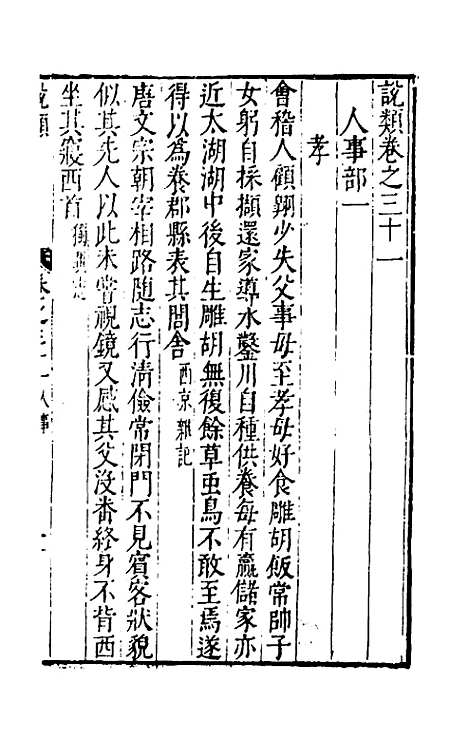 說類卷之三十一
人事部一
孝
會稽人顧翺少失父事母至孝母好食雕胡飯常帥子
女躬自採擷還家導水鑿川自種供養每有贏儲家亦
近太湖湖中後自生雕胡無復餘草虫鳥不敢至焉遂
得以爲養郡縣表其閭舍西京雜記
唐文宗朝宰相路隨志行清儉常閉門不見賓客狀貌
似其先人以此未嘗視鏡又感其父沒蕃終身不背西
坐其寢西首獨異志
說類